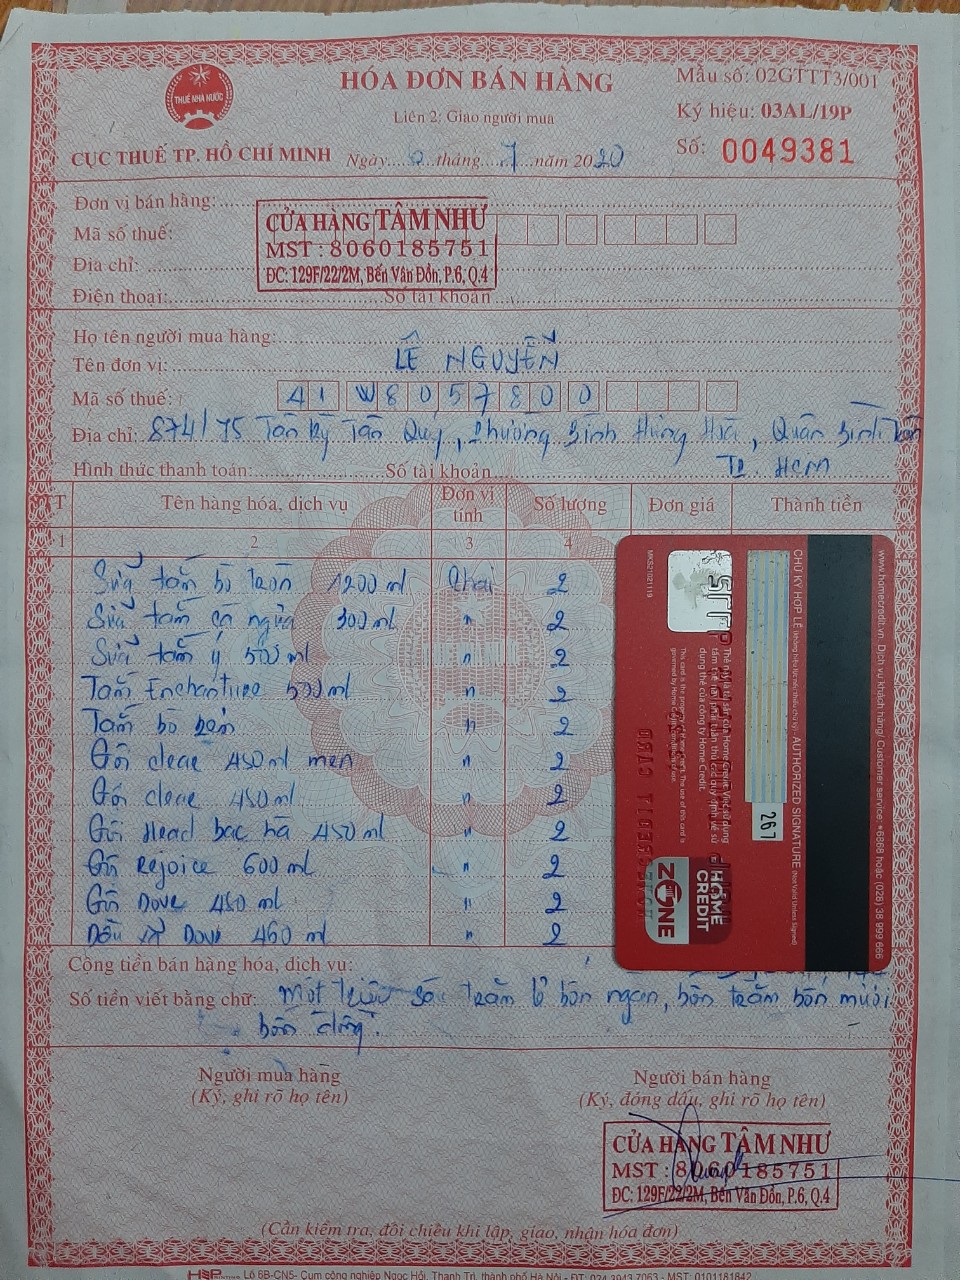 HÓA ĐƠN BÁN HÀNG
Mẫu số: 02GTTT3/001
Liên 2: Giao người mua
Ký hiệu: 03AL/19P
THUẾ NHÀ NƯỚC
CỤC THUẾ TP. HỒ CHÍ MINH
Ngày tháng 7 năm 2020
Số: 0049381
Đơn vị bán hàng:
Mã số thuế:
Địa chỉ:
Điện thoại: Số tài khoản
CỬA HÀNG TÂM NHƯ
MST : 8060185751
ĐC: 129F/22/2M, Bến Vân Đồn, P.6, Q.4
Họ tên người mua hàng:
Tên đơn vị: LÊ NGUYỄN
Mã số thuế: 41W8057800
Địa chỉ: 874/75 Tân Kỳ Tân Quý, Phường Bình Hưng Hòa, Quận Bình Tân
Tp. HCM
Hình thức thanh toán: Số tài khoản
TT Tên hàng hóa, dịch vụ Đơn vị tính Số lượng Đơn giá Thành tiền
1 2 3 4
Sữa tắm bò 1200 ml Chai 2
Sữa tắm cá ngựa 300 ml " 2
Sữa tắm ý 500 ml " 2
Tắm Enchanteur 500 ml " 2
Tắm bò " 2
Gội clear 450 ml men " 2
Gội clear 450 ml " 2
Gội Head bạc hà 450 ml " 2
Gội Rejoice 600 ml " 2
Gội Dove 450 ml " 2
Dầu xả Dove 460 ml " 2
www.homecredit.vn. Dịch vụ khách hàng/ Customer service: *6868 hoặc (028) 38 999 666
CHỮ KÝ HỢP LỆ (không hiệu lực nếu thiếu chữ ký) - AUTHORIZED SIGNATURE (Not Valid Unless Signed)
267
Thẻ này là tài sản của Home Credit. Việc sử dụng
dụng thẻ của công ty Home Credit.
This card is the property of Home Credit. The use of this card is
MKS21021119
HOME CREDIT
ZONE
Cộng tiền bán hàng hóa, dịch vụ:
Số tiền viết bằng chữ: Một triệu sáu trăm lẻ bốn ngàn, bốn trăm bốn mươi
bốn đồng.
Người mua hàng
(Ký, ghi rõ họ tên)
Người bán hàng
(Ký, đóng dấu, ghi rõ họ tên)
CỬA HÀNG TÂM NHƯ
MST : 8060185751
ĐC: 129F/22/2M, Bến Vân Đồn, P.6, Q.4
(Cần kiểm tra, đối chiếu khi lập, giao, nhận hóa đơn)
Lô 6B-CN5- Cụm công nghiệp Ngọc Hồi, Thanh Trì, thành phố Hà Nội - ĐT: 024.3943.7053 - MST: 0101181842